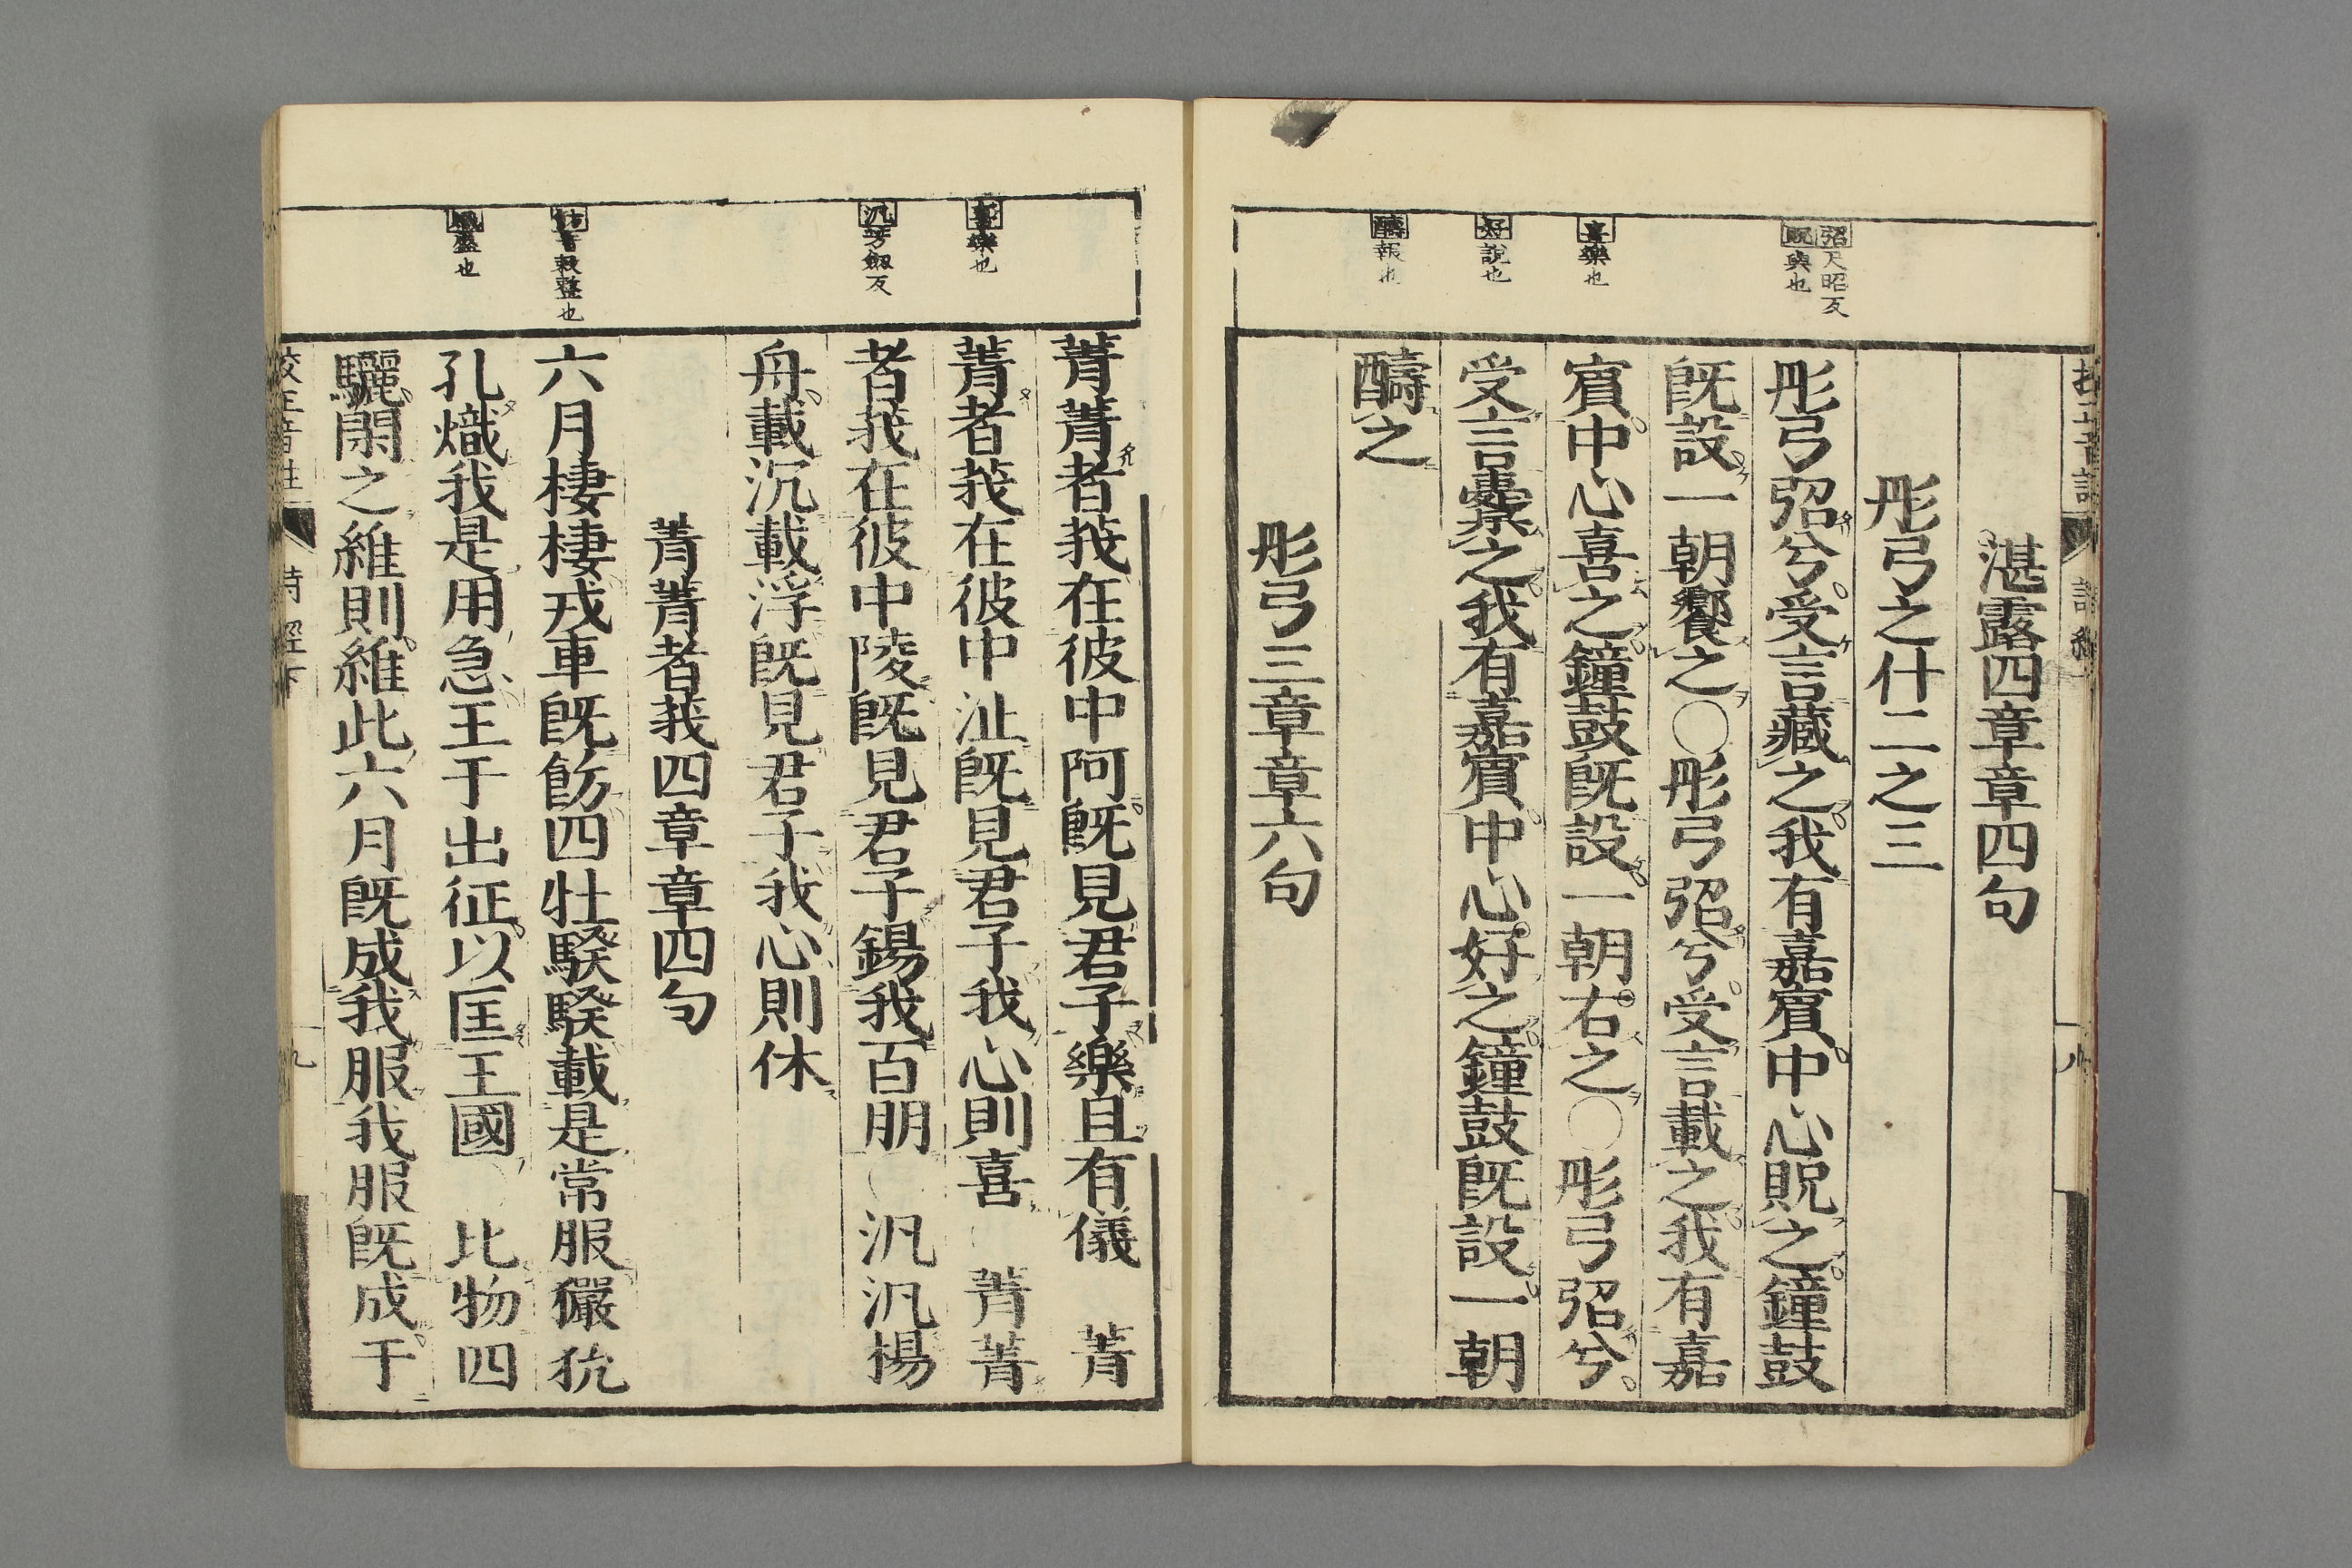 湛露四章章四句
彤弓之什二之三
彤弓弨兮受言藏之我有嘉賔中心貺之鐘鼓
旣設一朝饗之○彤弓弨兮受言載之我有嘉
賔中心喜之鐘鼓旣設一朝右之○彤弓弨兮
受言櫜之我有嘉賔中心好之鐘鼓旣設一朝
醻之
彤弓三章章六句
弨尺昭反
貺與也
喜樂也
好說也
醻報也
菁菁者莪在彼中阿旣見君子樂且有儀 菁
菁者莪在彼中沚旣見君子我心則喜 菁菁
者莪在彼中陵旣見君子錫我百朋○汎汎楊
舟載沉載浮旣見君子我心則休
菁菁者莪四章章四句
六月棲棲戎車旣飭四牡騤騤載是常服玁狁
孔熾我是用急王于出征以匡王國 比物四
驪閑之維則維此六月旣成我服我服旣成于
喜樂也
汎芳劔反
熾盛也
校正音註
詩經下
九